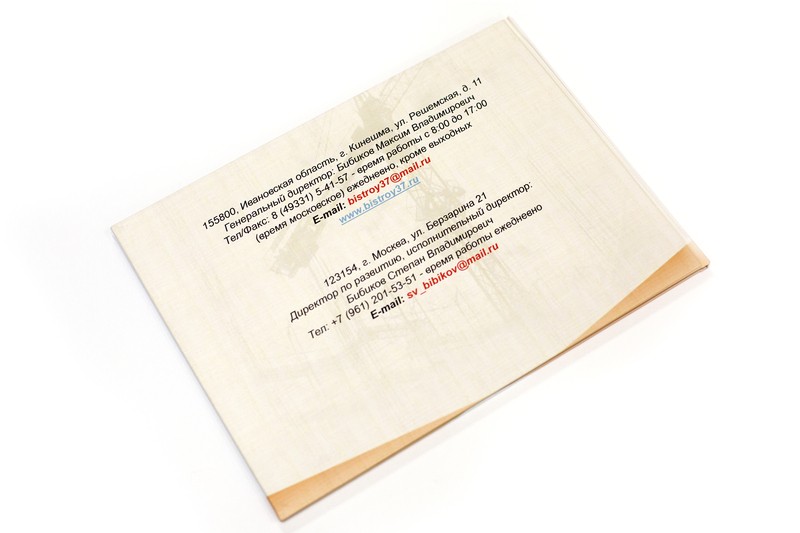 155800, Ивановская область, г. Кинешма, ул. Решемская, д. 11
Генеральный директор: Бибиков Максим Владимирович
Тел/Факс: 8 (49331) 5-41-57 - еремя работы с 8:00 до 17:00
(время московское) ежедневно, кроме выходных
E-mail: bistroy37@mail.ru
www.bistroy37.ru
123154, г. Москва, ул. Берзарина 21
Директор по развитию, исполнительный директор:
Бибиков Степан Владимирович
Тел: +7 (961) 201-53-51 - еремя работы ежедневно
E-mail: sv_bibikov@mail.ru